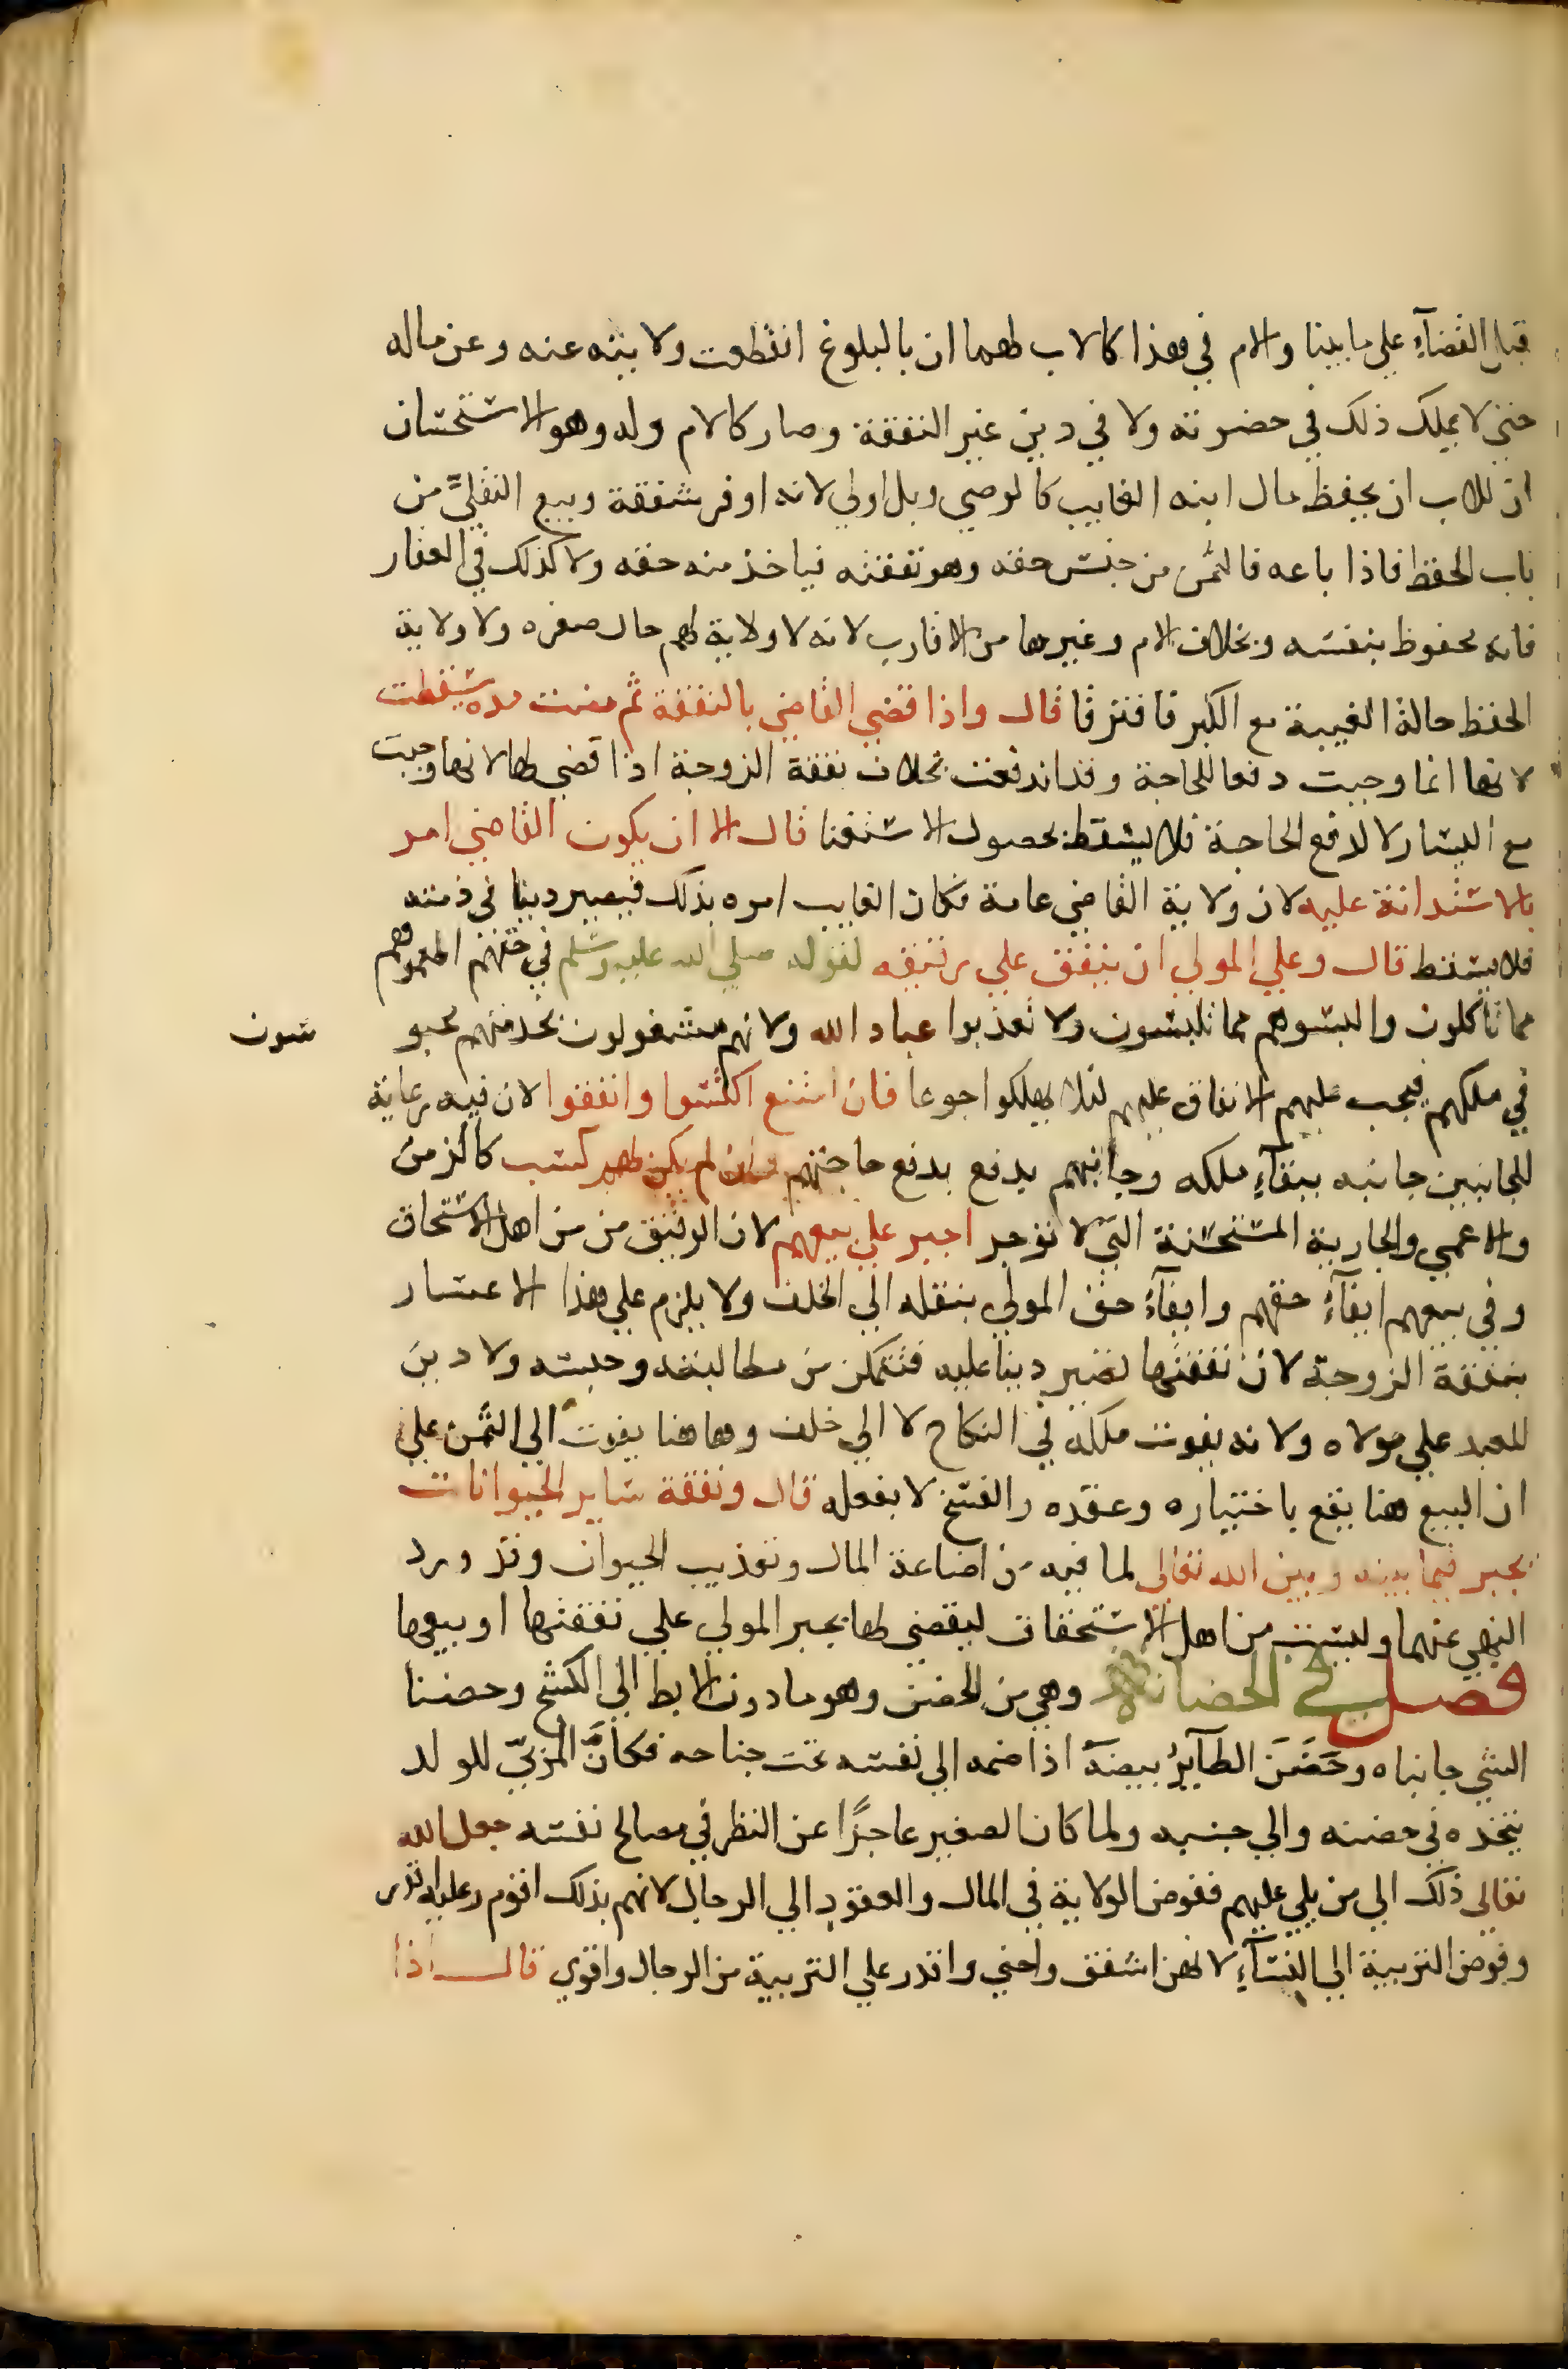 قبل القضآءِ علي ما بينا والام في هذا كالاب لهما ان بالبلوغ انقطعت ولايته عنه وعن ماله
حتي لا يملك ذلك في حضرته ولا في دين غير النفقة وصار كالام وله وهو الاستحسان
ان للاب ان يحفظ مال ابنه الغايب كالوصي وبل اولي لانه اوفر شفقة وبيع النقليَّ من
باب الحفظ فاذا باعه فالثمن من جنس حقه وهو نفقته فياخذ منه حقه ولا كذلك في العقار
فانه محفوظ بنفسه وبخلاف الام وغيرها من الاقارب لانه لا ولاية لهم حال صغره ولا ولاية
الحفظ حالة الغيبة مع الكبر فافترقا قال واذا قضي القاضي بالنفقة ثم مضت مدة سقطت
لانها انما وجبت دفعا للحاجة وقد اندفعت بخلاف نفقة الزوجة اذا قضي لها لانها وجبت
مع اليسار لا لدفع الحاجة فلا يسقط بحصول الاستغنا قال الا ان يكون القاضي امر
بالاستدانة عليه لان ولاية القاضي عامة فكان الغايب امره بذلك فيصير دينا في ذمته
فلا يسقط قال وعلي المولي ان ينفق علي رقيقه لقوله صلي الله عليه وسلم في حقهم اطعموهم
مما تاكلون والبسوهم مما تلبسون ولا تعذبوا عباد الله ولانهم مشغولون بخدمتهم محبو سون
في ملكهم فيجب عليهم الانفاق عليهم لئلا يهلكوا جوعا فان امتنع اكتسبوا وانفقوا لان فيه رعاية
للجانبين جانبه ببقآءِ ملكه وجانبهم يدفع بدفع حاجتهم وان لم يكن لهم كسب كالزمن
والاعمي والجارية المستحسنة التي لا تؤجر اجبر علي بيعهم لان الرقيق من من اهل الاستحاق
وفي بيعهم ايفآءُ حقهم وايفآءُ حق المولي بنقله الي الخلف ولا يلزم علي هذا الاعسار
بنفقة الزوجة لان نفقتها تصير دينا عليه فتتمكن من مطالبته وحبسه ولا دين
للعبد علي مولاه ولانه يفوت ملكه في النكاح لا الي خلف وهاهنا يفوت الي الثمن علي
ان البيع هنا يقع باختياره وعقده والفسخ لا بفعله قال ونفقة ساير الحيوانات
يجبر فيما بينه وبين الله تعالي لما فيه من اضاعة المال وتعذيب الحيوان وقد ورد
النهي عنهما وليست من اهل الاستحقاق ليقضي لها بجبر المولي علي نفقتها او بيعها
فصل في الحضانة وهي من الحضن وهو ما دون الابط الي الكشح وحضنا
الشي جانباه وحَضَنَ الطآيرُ بيضَهَ اذا ضمه الي نفسه تحت جناحه فكانَّ المربيّ للولد
يتخذه في حضنه والي جنبيه ولما كان الصغير عاجزًا عن النظر في مصالح نفسه جعل الله
تعالي ذلك الي من يلي عليهم ففوض الولاية في المال والعقود الي الرجال لانهم بذلك اقوم وعليه اقدر
وفوض التربية الي النسآءِ لانهن اشفق واحني واقدر علي التربية من الرجال واقوي قال اذا